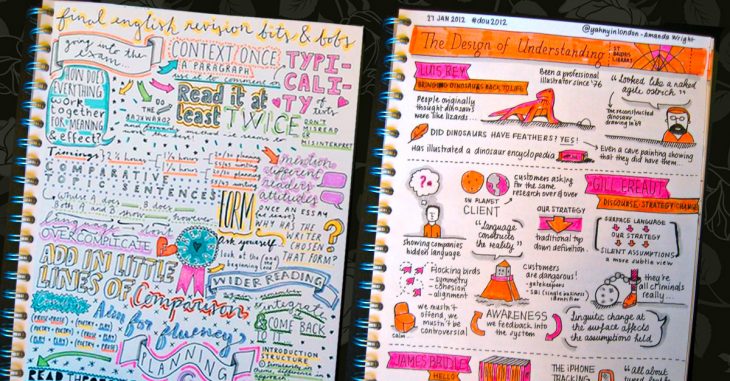 final english revision bits & bobs
going into the
exam...
HOW DOES
EVERYTHING
WORK
TOGETHER
FOR MEANING
& EFFECT?
CONTEXT/ONCE
A PARAGRAPH
use it to comment
Read it at
least TWICE
DO
the
BACKWARDS
TYPI-
CALI-
TY
of texts
DON'T
MISREAD
OR
MISINTERPRET
Timings:
COMPARATIVE
TOPIC SENTENCES
Where A does B does
A and B show however
mention
different
readers
attitudes
FORM
IN AN ESSAY
WHY HAS THE
WRITER
CHOSEN
THAT FORM?
language don't
OVERCOMPLICATE
Ask yourself
look at the
beginning and
ADD IN LITTLE
LINES OF Comparison
WIDER READING
Aim for fluency
integrate
COME BACK
TO IT
PLANNING
INTRODUCTION
STRUCTURE
READ THROUGH
27 JAN 2012 #dou2012
@yahnyinlondon - Amanda Wright
The Design of Understanding
ST
BRIDES
LIBRARY
LUIS REY
BRINGING DINOSAURS BACK TO LIFE
Been a professional
illustrator since '76
"Looked like a naked
agile ostrich"
People originally
thought dinosaurs
were like lizards...
The reconstructed
dinosaur
drawing in '69
DID DINOSAURS HAVE FEATHERS? YES!
Even a cave painting showing
that they did have them.
Has illustrated a dinosaur encyclopedia
customers asking
for the same
research over & over
GILL EREAUT
DISCOURSE - STRATEGY/CHANGE
ON PLANET
CLIENT
"Language
constructs
the reality"
OUR STRATEGY
traditional top
down definition
SURFACE LANGUAGE
OUR STRATEGY
SILENT ASSUMPTIONS
a more subtle view
showing companies
hidden language
flocking birds
- symmetry
- cohesion
- alignment
customers
are dangerous!
- gatekeepers
they're
all criminals
really
we mustn't
offend, we
mustn't be
controversial
calm
AWARENESS
we feedback into
the system
linguistic change at
the surface affects
the assumptions held
JAMES BRIDLE
HELLO
THE IPHONE
TRACKING
"all about